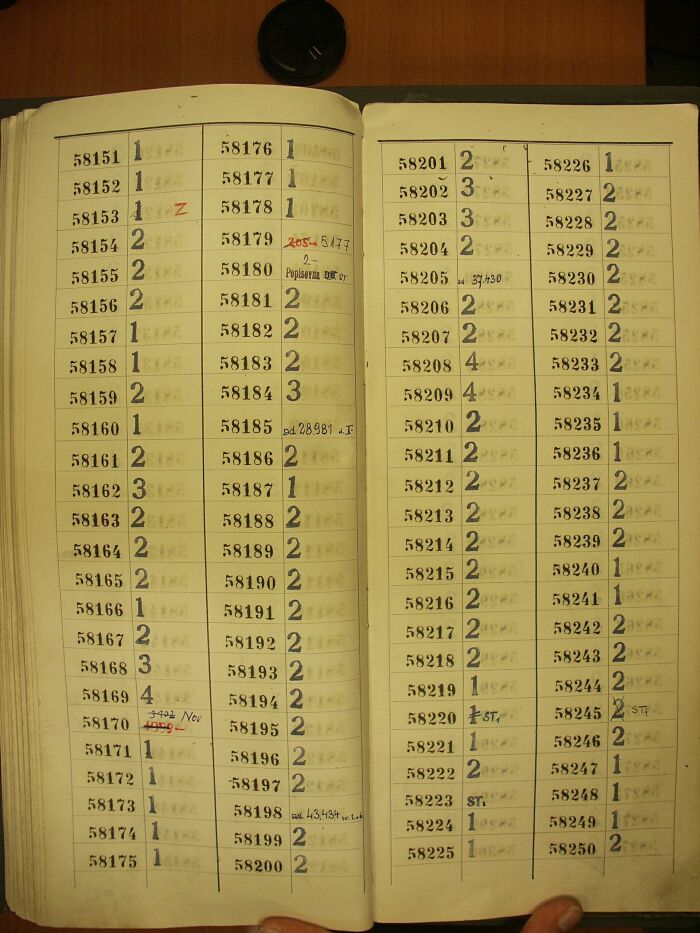 58151 1
58152 1
58153 1 Z
58154 2
58155 2
58156 2
58157 1
58158 1
58159 2
58160 1
58161 2
58162 3
58163 2
58164 2
58165 2
58166 1
58167 2
58168 3
58169 4
58170 Nov
58171 1
58172 1
58173 1
58174 1
58175 1
58176 1
58177 1
58178 1
58179 205 5177
2-
58180 Popisovna ST
58181 2
58182 2
58183 2
58184 3
58185 ad 28981
58186 2
58187 1
58188 2
58189 2
58190 2
58191 2
58192 2
58193 2
58194 2
58195 2
58196 2
58197 2
58198 ad 43,434
58199 2
58200 2
58201 2
58202 3
58203 3
58204 2
58205 ad 37.430
58206 2
58207 2
58208 4
58209 4
58210 2
58211 2
58212 2
58213 2
58214 2
58215 2
58216 2
58217 2
58218 2
58219 1
58220 1 ST,
58221 1
58222 2
58223 ST.
58224 1
58225 1
58226 1
58227 2
58228 2
58229 2
58230 2
58231 2
58232 2
58233 2
58234 1
58235 1
58236 1
58237 2
58238 2
58239 2
58240 1
58241 1
58242 2
58243 2
58244 2
58245 2 ST,
58246 2
58247 1
58248 1
58249 1
58250 2